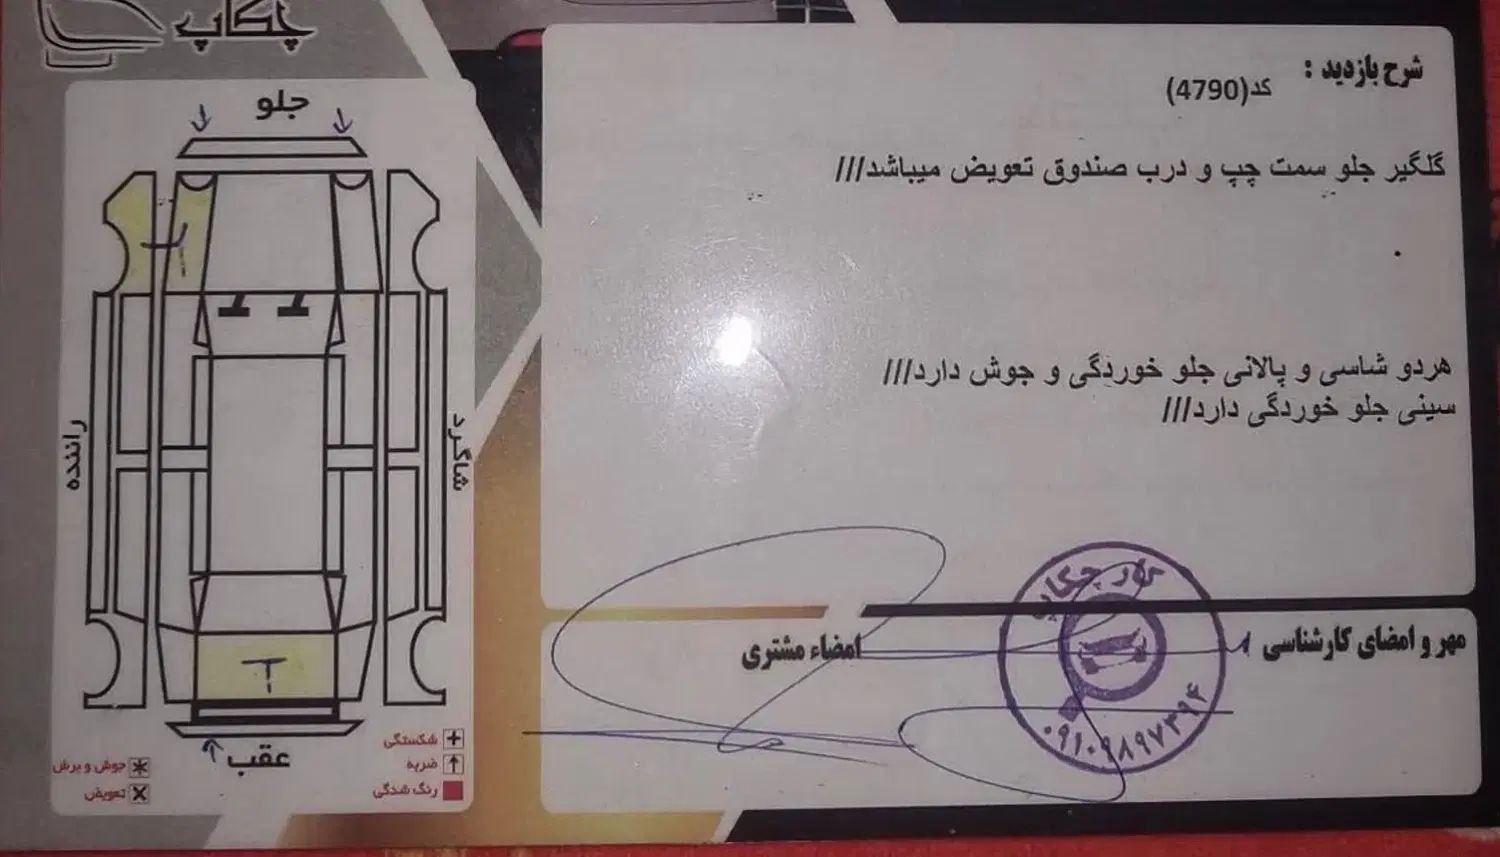 چکاپ
جلو
راننده
شاگرد
عقب
شکستگی
ضربه
رنگ شدگی
جوش و برش
تعویض
شرح بازدید :
کد(4790)
گلگیر جلو سمت چپ و درب صندوق تعویض میباشد///
هردو شاسی و پالانی جلو خوردگی و جوش دارد///
سینی جلو خوردگی دارد///
مهر و امضای کارشناسی
امضاء مشتری
کار چکاپ
۰۹۱۰۹۸۹۷۳۹۴